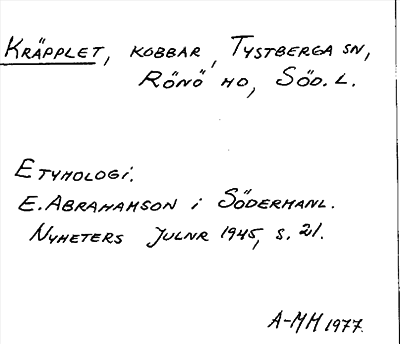 KRÄPPLET, KOBBAR, TYSTBERGA SN,
RÖNÖ HD, SÖD. L.
ETYMOLOGI.
E. ABRAHAMSON i SÖDERMANL.
NYHETERS JULNR 1945, S. 21.
A-MM 1977.